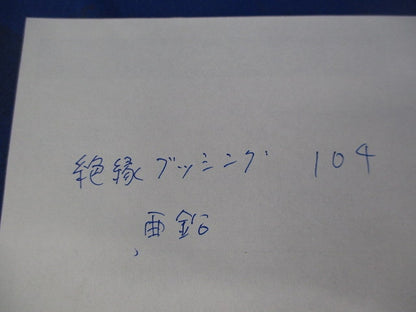 絶縁ブッシング 104
亜鉛